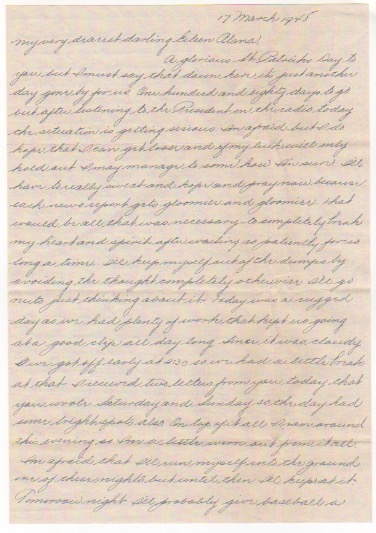 17 March 1948
My very dearest darling Eileen Alana!
A glorious St Patricks Day to
you but I must say that down here its just another
day gone by for us. One hundred and eighty days to go
but after listening to the President on the radio today
the situation is getting serious Im afraid but I do
hope that I can get loose and if my luck will only
hold out I may manage to some how Im sure. Ill
have to really sweat and hope and pray now because
each news report gets gloomier and gloomier. That
would be all that was necessary to completely break
my heart and spirit after waiting so patiently for so
long a time. Ill keep myself out of the dumps by
avoiding the thought completely otherwise Ill go
nuts just thinking about it. Today was a rugged
day as we had plenty of work that kept us going
at a good clip all day long. Since it was cloudy
we got off early at 230 so we had a little break
at that. I received two letters from you today that
you wrote Saturday and Sunday so the day had
some bright spots also. On top of it all I ran around
this evening so Im a little worn out from it all.
Im afraid that Ill run myself into the ground
one of these nights but until then Ill keep at it.
Tomorrow night Ill probably give baseball a